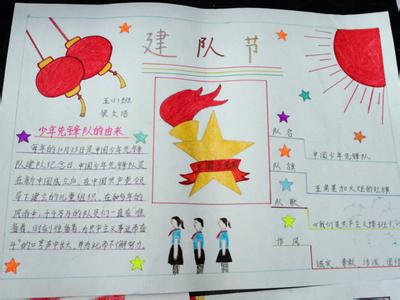 建队节
五(1)班
少年先锋队的由来
每年的10月13日是中国少年先锋
队建队纪念日,中国少年先锋队是
在新中国成立后,在中国共产党领
导下建立的儿童组织,在如今年的
风雨中,千千万万的队员们一直在"准
备着,时刻准备着,为共产主义事业奋
斗"的口号声中长大,并为此而不懈努力。
队名
中国少年先锋队
队旗
五角星加火炬的红旗
队歌
《我们是共产主义接班人》
作风
诚实、勇敢、活泼、团结